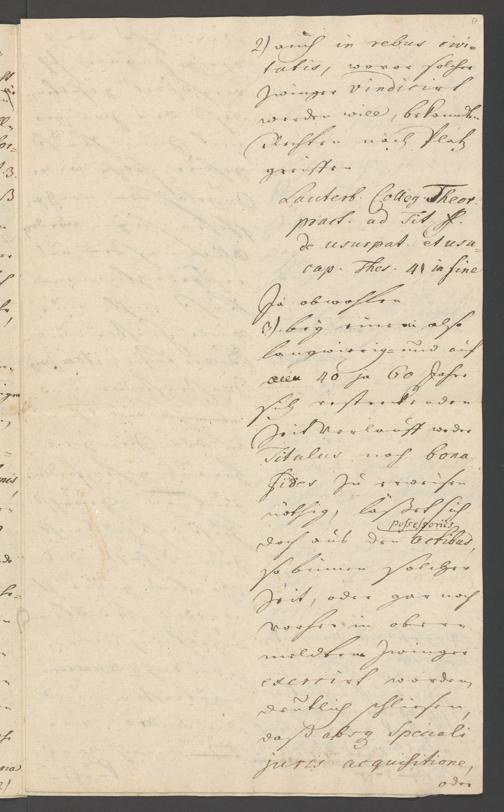 2) auch in rebus civi=
tatis, wovor solcher
Zwinger vindicirt
werden will, bekannten
Rechten nach Platz
greiffen
Lauterb. Colleg. Theor.
pract. ad Tit. ff.
de usurpat. et usu=
cap. Thes. 41 in fine
Ja obwohlen
3) bey einem also
langwierig= und auf
40 ja 60 Jahre
sich erstreckenden
Zeit Verlauff weder
Titulus noch bona
fides zu erweisen
nöthig, läßet sich
doch aus den possessoriis
actibus,
so binnen solcher
Zeit, oder gar noch
vorhero in oberm
meldtem Zwinger
exercirt worden,
deutlich schliesen,
daß absq speciali
juris acquisitione,
oder